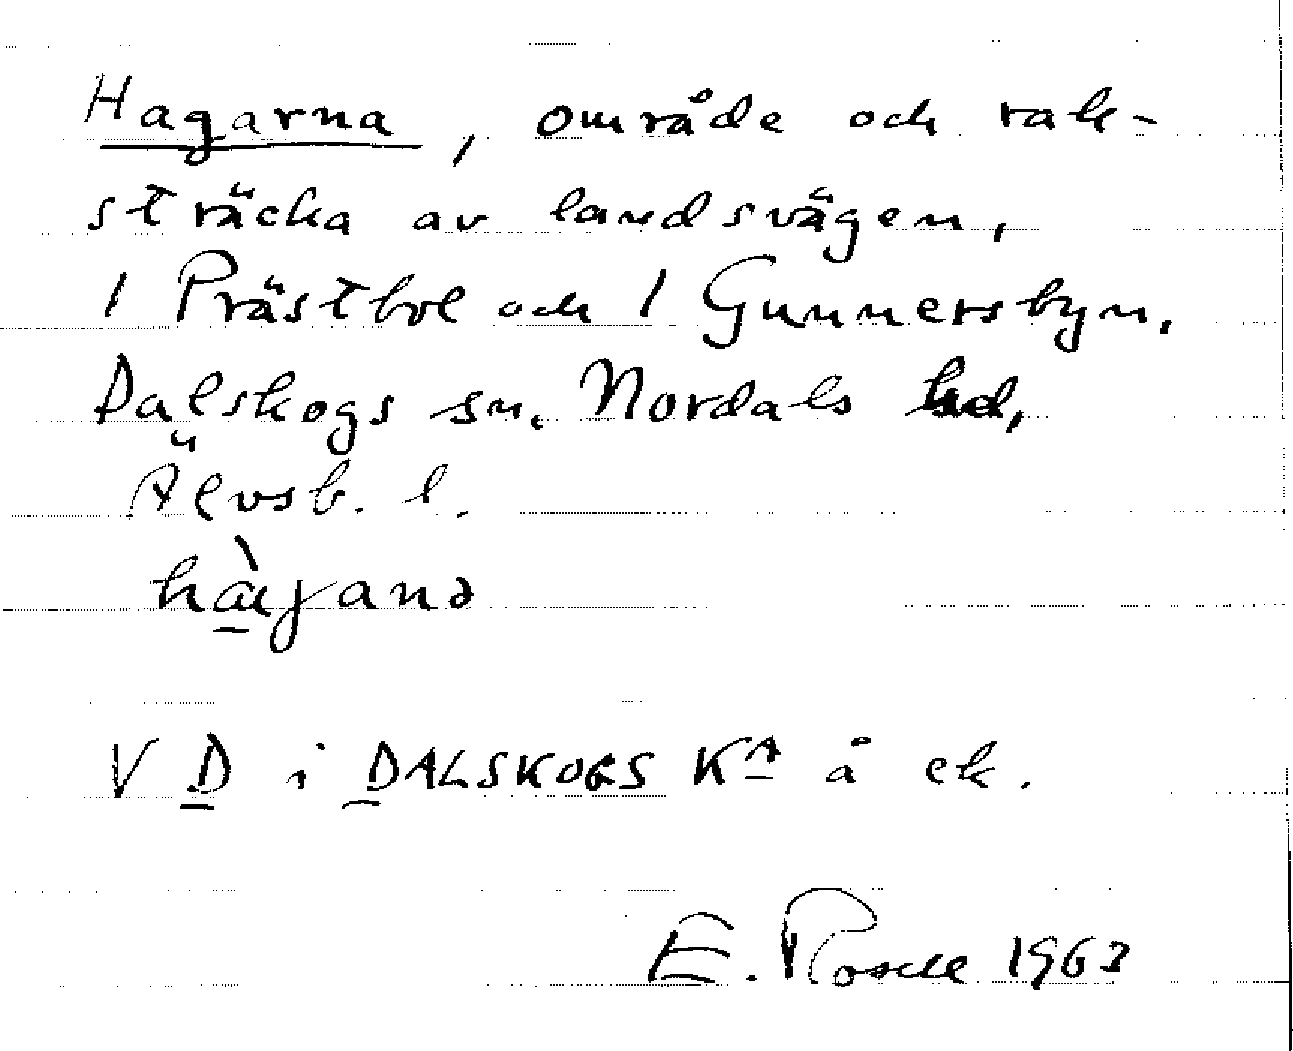 Hagarna, område och rak-
sträcka av landsvägen,
1 Prästbol och 1 Gunnersbyn,
Dalskogs sn. Nordals hd,
Älvsb. l.
hàgana
V D i DALSKOGS KA å ek.
E. Rosell 1963